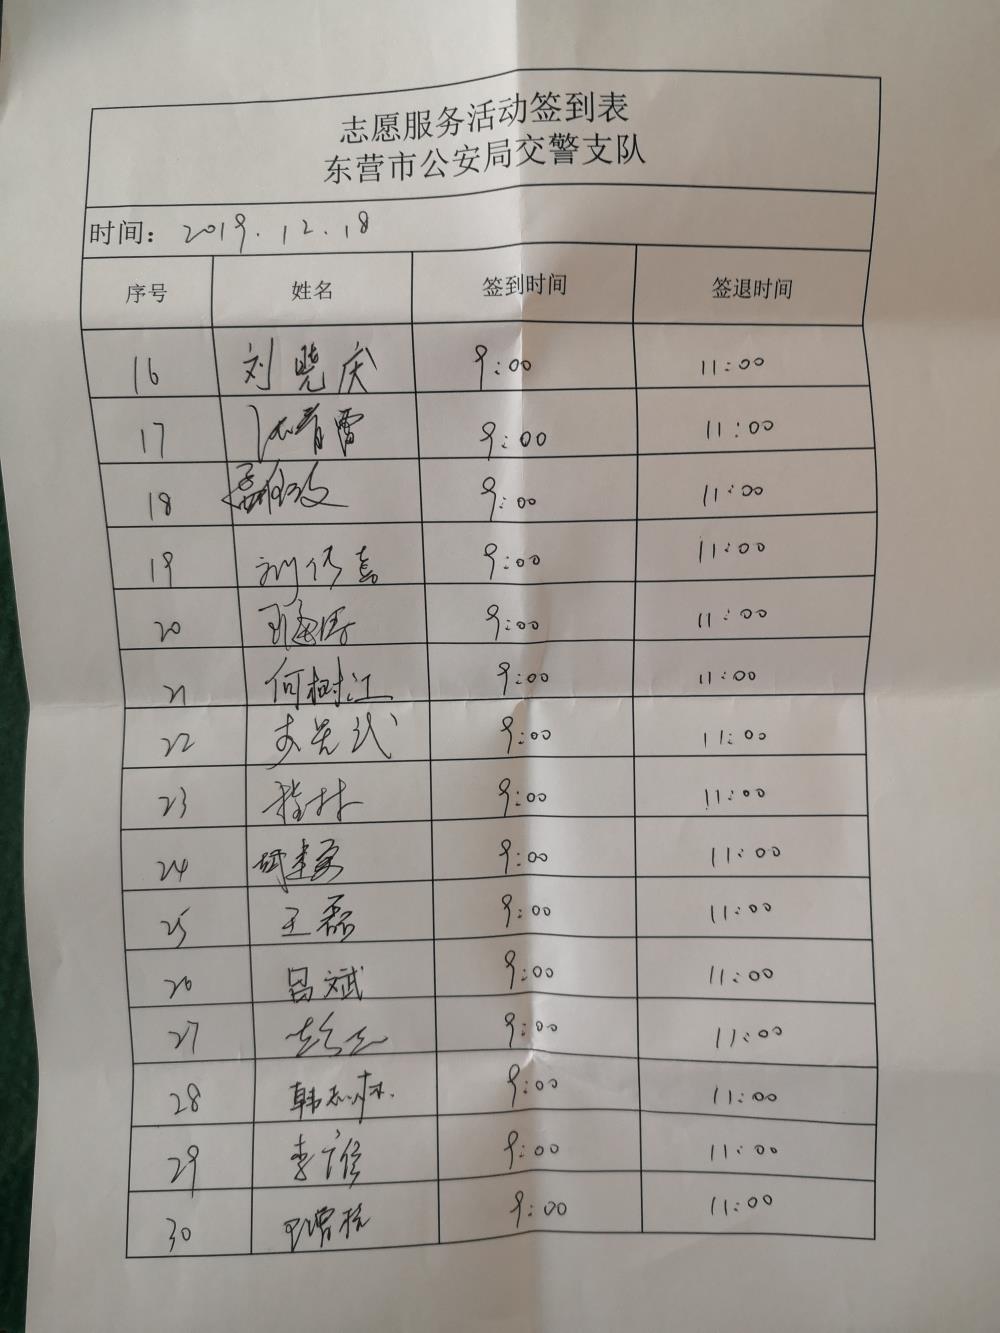 志愿服务活动签到表
东营市公安局交警支队
时间： 2019.12.18
序号 姓名 签到时间 签退时间
16 刘晓庆 9:00 11:00
17 9:00 11:00
18 9:00 11:00
19 9:00 11:00
20 王海涛 9:00 11:00
21 何树江 9:00 11:00
22 9:00 11:00
23 程林 9:00 11:00
24 9:00 11:00
25 王磊 9:00 11:00
26 吕斌 9:00 11:00
27 9:00 11:00
28 9:00 11:00
29 9:00 11:00
30 9:00 11:00